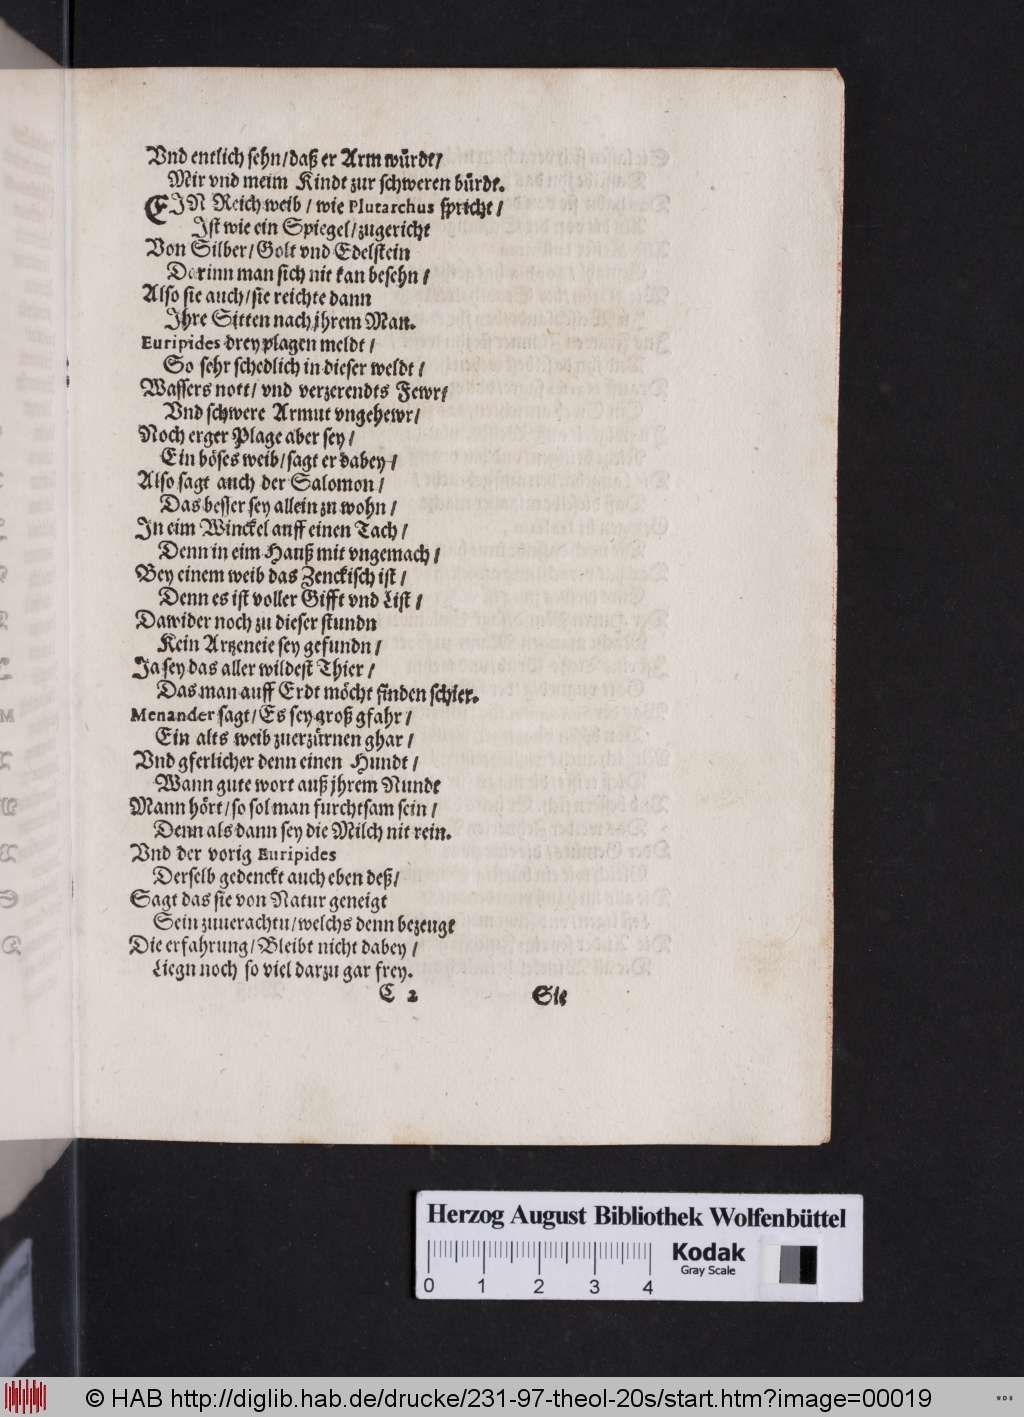 Vnd entlich sehn/ daß er Arm wuͤrdt/
Mir vnd meim Kindt zur schweren buͤrdt.
EIN Reich weib / wie Plutarchus spricht /
Ist wie ein Spiegel/ zugericht
Von Silber/ Golt vnd Edelstein
Dorinn man sich nit kan besehn /
Also sie auch/ sie reichte dann
Ihre Sitten nach jhrem Man.
Euripides drey plagen meldt /
So sehr schedlich in dieser weldt /
Wassers nott/ vnd verzerendts Fewr/
Vnd schwere Armut vngehewr/
Noch erger Plage aber sey /
Ein boͤses weib/ sagt er dabey /
Also sagt auch der Salomon /
Das besser sey allein zu wohn /
In eim Winckel auff einen Tach /
Denn in eim Hauß mit vngemach /
Bey einem weib das Zenckisch ist /
Denn es ist voller Gifft vnd List /
Dawider noch zu dieser stundn
Kein Artzeneie sey gefundn /
Ja sey das aller wildest Thier /
Das man auff Erdt moͤcht finden schier.
Menander sagt/ Es sey groß gfahr /
Ein alts weib zuerzuͤrnen ghar /
Vnd gferlicher denn einen Hundt /
Wann gute wort auß jhrem Nundt
Mann hoͤrt/ so sol man furchtsam sein /
Denn als dann sey die Milch nit rein.
Vnd der vorig Euripides
Derselb gedenckt auch eben deß/
Sagt das sie von Natur geneigt
Sein zuuerachtn/ welchs denn bezeugt
Die erfahrung/ Bleibt nicht dabey /
Liegn noch so viel darzu gar frey.
C 2 Sie
Herzog August Bibliothek Wolfenbüttel
Kodak
Gray Scale
0 1 2 3 4
© HAB http://diglib.hab.de/drucke/231-97-theol-20s/start.htm?image=00019